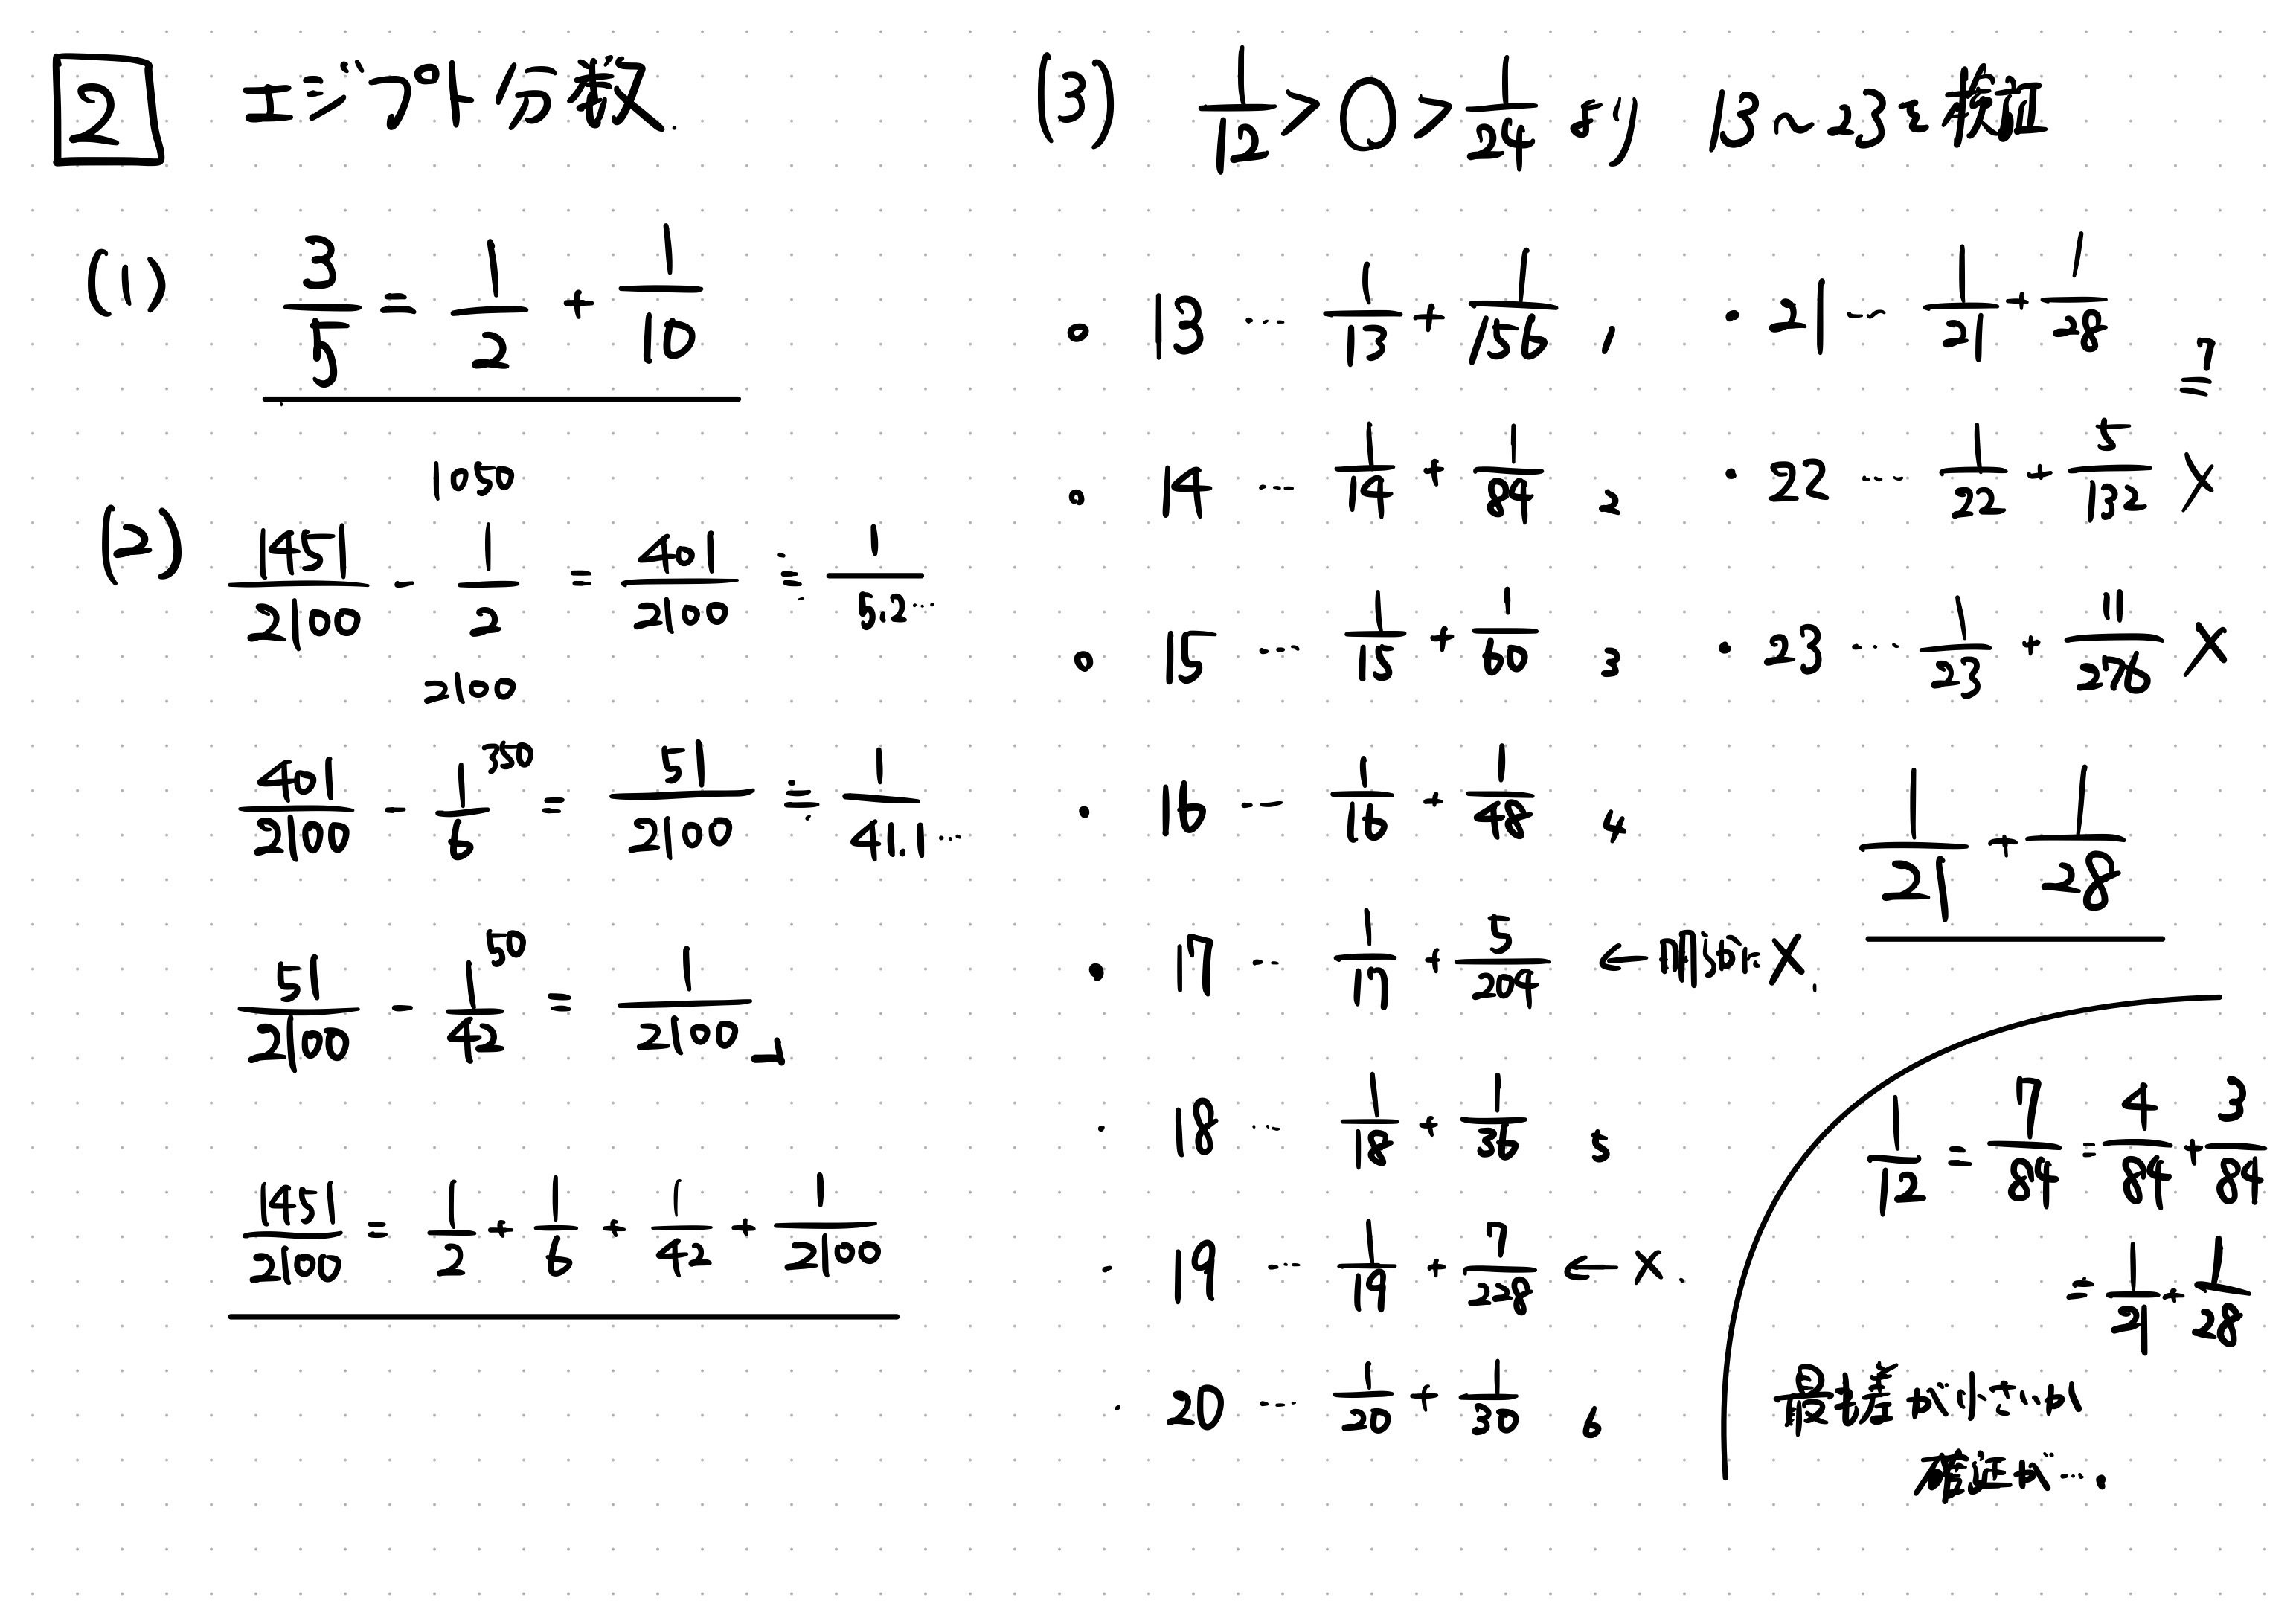 2 エジプト分数.
(1) 3/5 = 1/2 + 1/10
1050
(2) 1451/2100 - 1/2 = 401/2100 ≒ 1/5.2…
2100
401/2100 - 1/6 350 = 51/2100 ≒ 1/41.1…
51/2100 - 1/42 50 = 1/2100
1451/2100 = 1/2 + 1/6 + 1/42 + 1/2100
(3) 1/12 > 〇 > 1/24 より 13〜23を検証
。 13 … 1/13 + 1/156 1
。 14 … 1/14 + 1/84 2
。 15 … 1/15 + 1/60 3
・ 16 … 1/16 + 1/48 4
・ 17 … 1/17 + 5/204 ← 明らかに×.
・ 18 … 1/18 + 1/36 5
・ 19 … 1/19 + 7/228 ← ×.
・ 20 … 1/20 + 1/30 6
・ 21 … 1/21 + 1/28 7
・ 22 … 1/22 + 5/132 ×
・ 23 … 1/23 + 11/276 ×
1/21 + 1/28
1/12 = 7/84 = 4/84 + 3/84
= 1/21 + 1/28
最も差が小さいか
確証が….